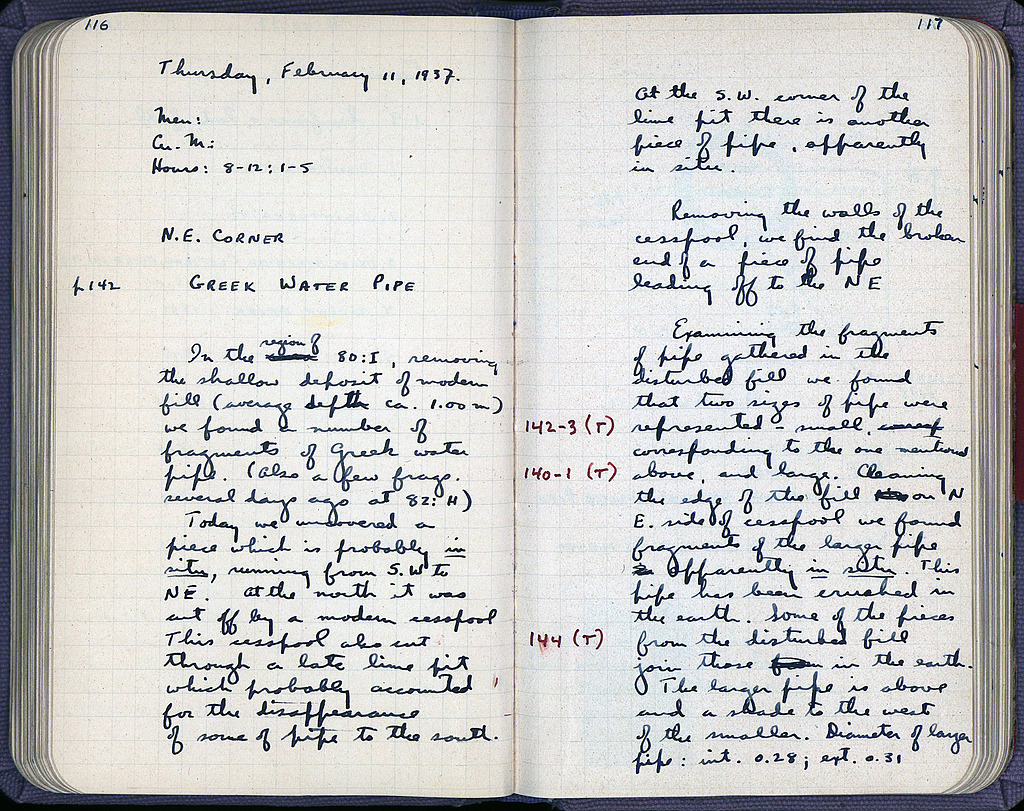 116
Thursday, February 11, 1937.
Men:
Cu. M.:
Hours: 8-12; 1-5
N.E. CORNER
p142 GREEK WATER PIPE
In the region of 80:I, removing
the shallow deposit of modern
fill (average depth ca. 1.00 m)
we found a number of
fragments of Greek water
pipe. (Also a few frags.
several days ago at 82: H)
Today we uncovered a
piece which is probably in
situ, running from S.W to
NE. At the north it was
cut off by a modern cesspool
This cesspool also cut
through a late lime pit
which probably accounted
for the disappearance
of some of pipe to the south.
117
At the S.W. corner of the
lime pit there is another
piece of pipe, apparently
in situ.
Removing the walls of the
cesspool, we find the broken
end of a piece of pipe
leading off to the NE
Examining the fragments
of pipe gathered in the
disturbed fill we found
that two sizes of pipe were
142-3 (T) represented - small,
corresponding to the one mentioned
140-1 (T) above, and large. Cleaning
the edge of the fill on N
E. side of cesspool we found
fragments of the larger pipe
apparently in situ. This
pipe has been crushed in
the earth. Some of the pieces
144 (T) from the disturbed fill
join those in the earth.
The larger pipe is above
and a shade to the west
of the smaller. Diameter of larger
pipe: int. 0.28; ext. 0.31